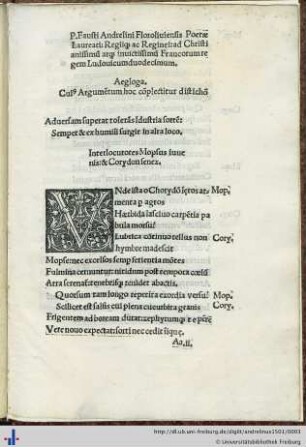 P. Fausti Andrelini Foroliuiensis Poetæ
Laureati Regiiq; ac Reginei ad Christi
anissimū atq; inuictissimū Francorum re
gem Ludouicum duodecimum.
Aegloga,
Cui⁹ Argumētum hoc cōplectitur distichō
Aduersam superat tolerās Idustria sortē:
Semper & ex humili surgit in alta loco,
Interlocutores Mopsus iuue
nis: & Corydon senex.
VNde ista o Chorydō
Mop.
menta p agros
Hærbida lasciuo carpētia pa
bula morsu?
Lubrica cōtinuo tellus non
Cory.
hymbre madescit
Mopse: nec excelsos semp ferientia mōtes
Fulmina cernuntur: nitidum post tempora cœlū
Atra serenatæ tenebrisq; renidet abactis,
Quorsum tam longo repetita exordia versu?
Mop.
Scilicet est falsis cui plena cucurbita granis
Cory.
Frigentem ad boream durat: zephyrumq;
Vere nouo expectat: sorti nec cedit
Aa.ii.
http://dl.ub.uni-freiburg.de/diglit/andrelinus1501/0003
© Universitätsbibliothek Freiburg